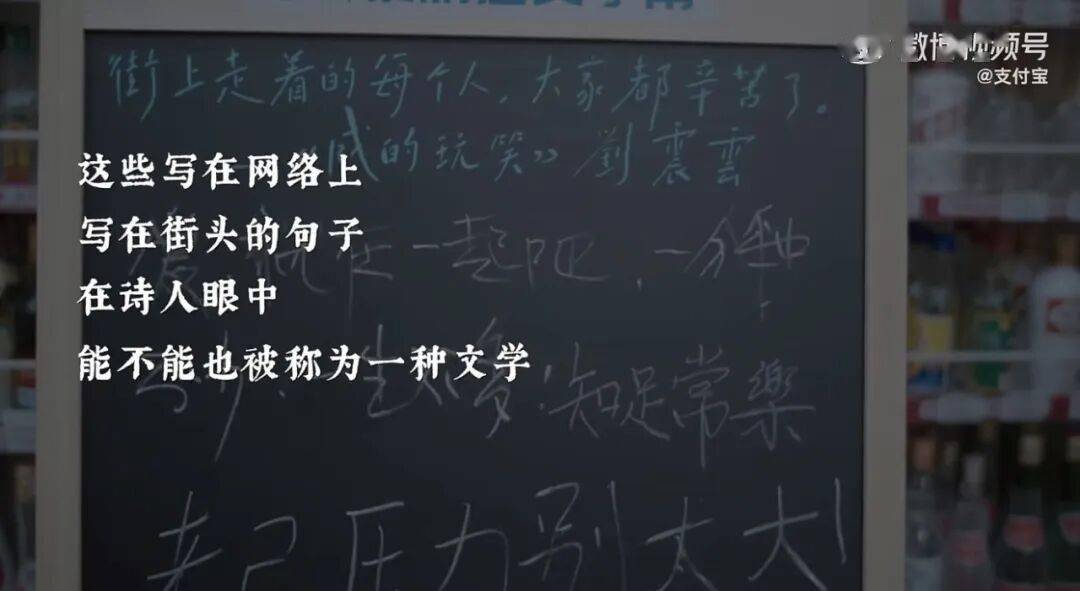 微博视频号
@支付宝
街上走着的每个人，大家都辛苦了。
咸的玩笑》劉震雲
这些写在网络上
写在街头的句子
在诗人眼中
能不能也被称为一种文学
在一起吧，一分钟
一生 多！知足常樂
老己压力别太大！